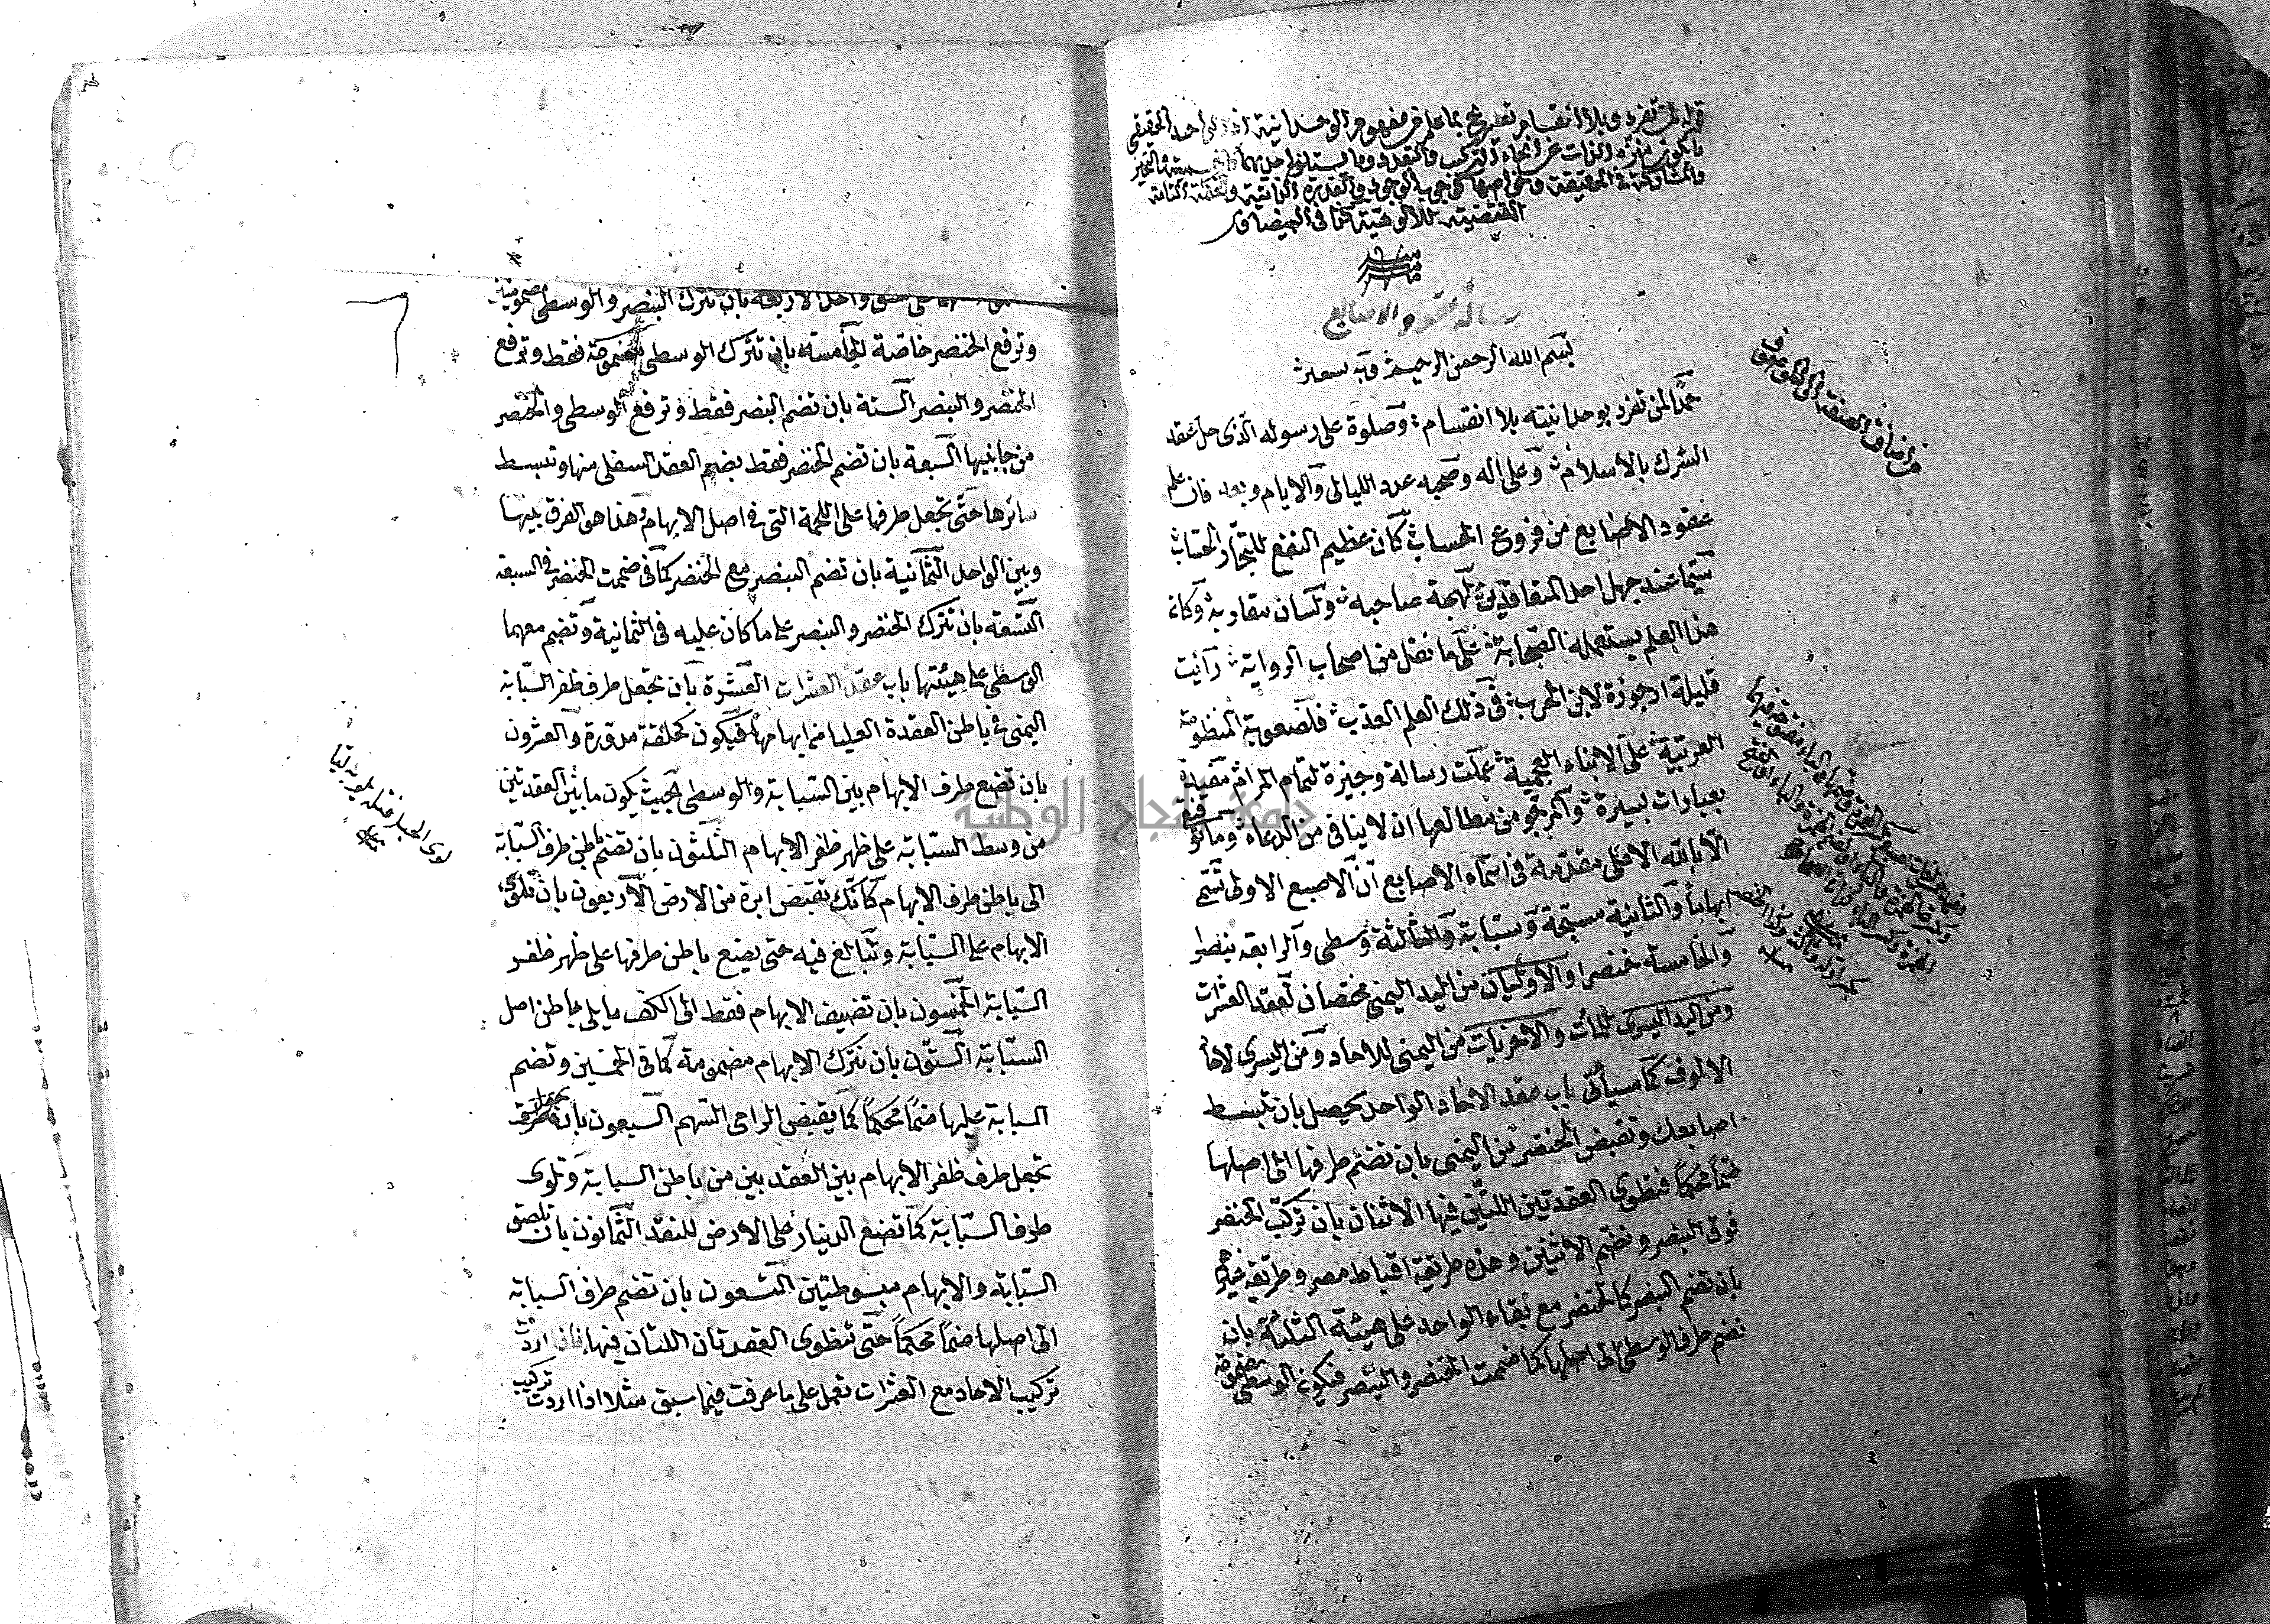 قوله لمن تفرد وبلا انقسام تصريح بما علم من مفهوم الوحدانية اذ الواحد الحقيقي
ما يكون منزه الذات عن انحاء التركيب والتعدد وما يستلزم احدهما كالجسمية والتحيز
والمشاركة في الحقيقة وخواصها كوجوب الوجود والقدرة الذاتية والحكمة التامة
المقتضية للالوهية كما في البيضاوي
رسالة عقود الاصابع
بسم الله الرحمن الرحيم وبه
حمدا لمن تفرد بوحدانيته بلا انقسام وصلوة على رسوله الذى حل عقد
الشرك بالاسلام وعلى اله وصحبه عدد الليالى والايام وبعد فان علم
عقود الاصابع من فروع الحساب كان عظيم النفع للتجار الحساب
سيما عند جهل احد المتعاقدين لهجة صاحبه ولسان مقاربه وكان
هذا العلم يستعمله الصحابة على ما نقل من اصحاب الرواية رأيت
قليلة ارجوزة لابن المغرب فى ذلك العلم العذب فلصعوبة المنظومة
العربية على الابناء العجمية عملت رسالة وجيزة لتمام المرام مفيدة
بعبارات يسيرة والمرجو من مطالعها ان لا ينافى من الدعاء وما توفيقى
الا بالله الاعلى مقدمة فى اسماء الاصابع ان الاصبع الاولى تسمى
ابهاما والثانية مسبحة وسبابة والثالثة وسطى والرابعة بنصر
والخامسة خنصرا والاوليان من اليد اليمنى مختصان لعقد العشرات
ومن اليد اليسرى للمآت والاخريات من اليمنى للاحاد ومن اليسرى لاحاد
الالوف كما سيأتى باب عقد الاحاد الواحد يحصل بان تبسط
اصابعك وتقبض الخنصر من اليمنى بان تضم طرفها الى اصلها
ضما محكما فتطوى العقدتين اللتين فيها الاثنان بان تركب الخنصر
فوق البنصر وتضم الاثنين وهذه طريقة اقباط مصر وطريقة غيرهم
بان تضم البنصر كالخنصر مع بقاء الواحد على هيئته الثلثة بان
تضم طرف الوسطى الى اصلها كما ضممت الخنصر والبنصر فتكون الوسطى مضمومة
واحد الاربعة بان تترك البنصر والوسطى مضمومتين
وترفع الخنصر خاصة الخامسة بان تترك الوسطى مضمومة فقط وترفع
الخنصر والبنصر الستة بان تضم البنصر فقط وترفع الوسطى والخنصر
من جانبيها السبعة بان تضم الخنصر فقط بضم العقد السفلى منها وتبسط
سائرها حتى تجعل طرفها على اللحمة التى فى اصل الابهام وهذا هو الفرق بينها
وبين الواحد الثمانية بان تضم البنصر مع الخنصر كما فى ضممت الخنصر فى السبعة
التسعة بان تترك الخنصر والبنصر على ما كان عليه فى الثمانية وتضم معهما
الوسطى على هيئتها باب عقد العشرات العشرة بان تجعل طرف ظفر السبابة
اليمنى فى باطن العقدة العليا من ابهامها فيكون كحلقة مدورة والعشرون
بان تضع طرف الابهام بين السبابة والوسطى بحيث يكون ما بين العقدتين
من وسط السبابة على ظهر ظفر الابهام الثلثون بان تضم باطن طرف السبابة
الى باطن طرف الابهام كانك تقبض ابرة من الارض الاربعون بان تلوى
الابهام على السبابة وتبالغ فيه حتى يضع باطن طرفها على ظهر ظفر
السبابة الخمسون بان تضيف الابهام فقط الى الكف ما يلى باطن اصل
السبابة الستون بان تترك الابهام مضمومة كما فى الخمسين وتضم
السبابة عليها ضما محكما كما يقبض الرامى السهم السبعون بان
تجعل طرف ظفر الابهام بين العقدين من باطن السبابة وتلوى
طرف السبابة كما تضع الدينار على الارض للنقد الثمانون بان تلصق
السبابة والابهام مبسوطتين التسعون بان تضم طرف السبابة
الى اصلها ضما محكما حتى تنطوى العقدتان اللتان فيها فاذا اردت
تركيب الاحاد مع العشرات تعمل على ما عرفت فيما سبق مثلا اذا اردت تركيب
جامعة النجاح الوطنية